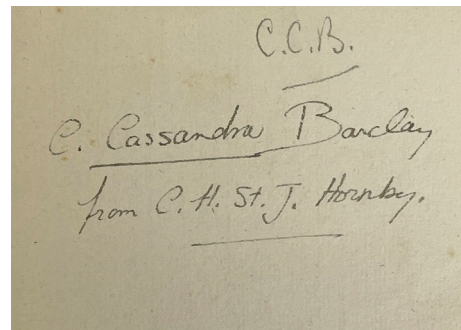 C.C.B.
C. Cassandra Barclay
from C. H. St. J. Hornby.